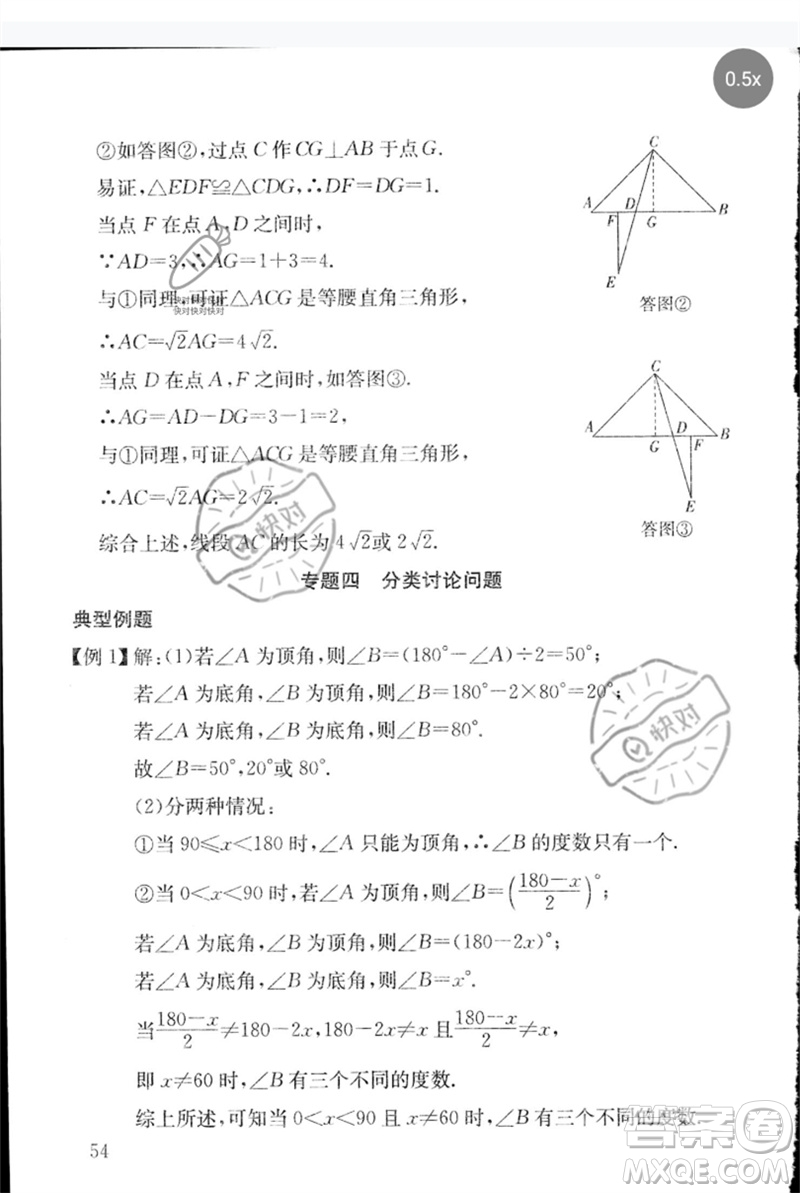 0.5x
②如答图②,过点C作CG⊥AB于点G.
易证,△EDF≌△CDG,∴DF=DG=1.
当点F在点A,D之间时,
∵AD=3,∴AG=1+3=4.
与①同理,可证△ACG是等腰直角三角形,
∴AC=√2AG=4√2.
当点D在点A,F之间时,如答图③.
∴AG=AD-DG=3-1=2,
与①同理,可证△ACG是等腰直角三角形,
∴AC=√2AG=2√2.
综合上述,线段AC的长为4√2或2√2.
C
A
F
D
G
B
E
答图②
C
A
G
D
F
B
E
答图③
快对快对快对
快对快对快对
快对
快对
专题四 分类讨论问题
典型例题
【例1】解:(1)若∠A为顶角,则∠B=(180°-∠A)÷2=50°;
若∠A为底角,∠B为顶角,则∠B=180°-2×80°=20°;
若∠A为底角,∠B为底角,则∠B=80°.
故∠B=50°,20°或80°.
(2)分两种情况:
①当90≤x<180时,∠A只能为顶角,∴∠B的度数只有一个.
②当0<x<90时,若∠A为顶角,则∠B=((180-x)/2)°;
若∠A为底角,∠B为顶角,则∠B=(180-2x)°;
若∠A为底角,∠B为底角,则∠B=x°.
当(180-x)/2≠180-2x,180-2x≠x且(180-x)/2≠x,
即x≠60时,∠B有三个不同的度数.
综上所述,可知当0<x<90且x≠60时,∠B有三个不同的度数.
54
答案圈
MXQE.COM